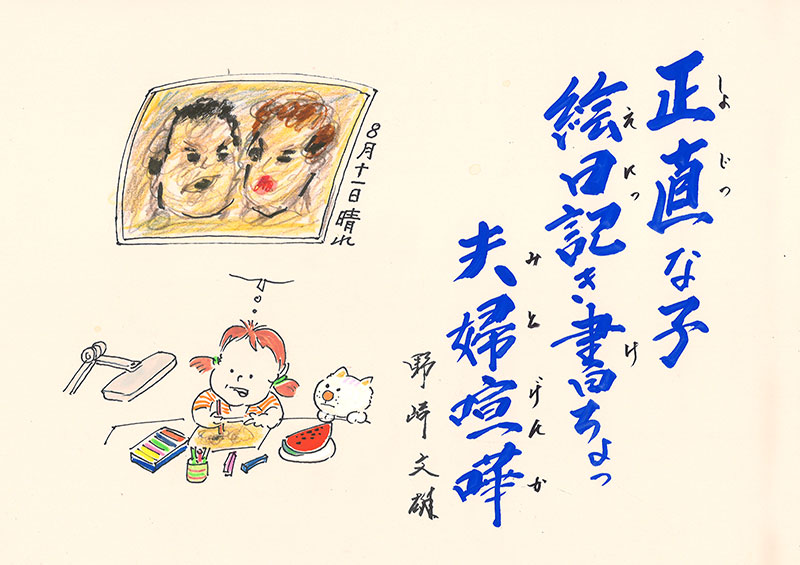 正直な子
しょじつ
絵日記き書ちょっ
えにっけ
夫婦喧嘩
みとげんか
野崎文雄
8月十一日晴れ